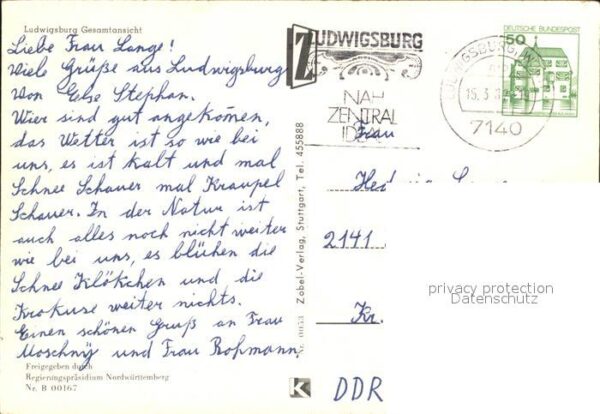 Ludwigsburg Gesamtansicht
Liebe Frau Lange!
Viele Grüße aus Ludwigsburg
Von Else Stephan.
Wier sind gut angekomen,
das Wetter ist so wie bei
uns, es ist kalt und mal
Schnee Schauer mal Kraupel
Schauer. In der Natur ist
auch alles noch nicht weiter
wie bei uns, es blühen die
Schnee Klökchen und die
Krokuse weiter nichts.
Einen schönen Gruß an Frau
Moschnÿ und Frau Roßmann,
Freigegeben durch
Regierungspräsidium Nordwürttemberg
Nr. B 00167
Nr. 0053 Zobel-Verlag, Stuttgart, Tel. 455888
K
LUDWIGSBURG
NAH
ZENTRAL
IDEAL
LUDWIGSBURG
15.3.
7140
DEUTSCHE BUNDESPOST
50
Frau
2141
Kr.
DDR
privacy protection
Datenschutz